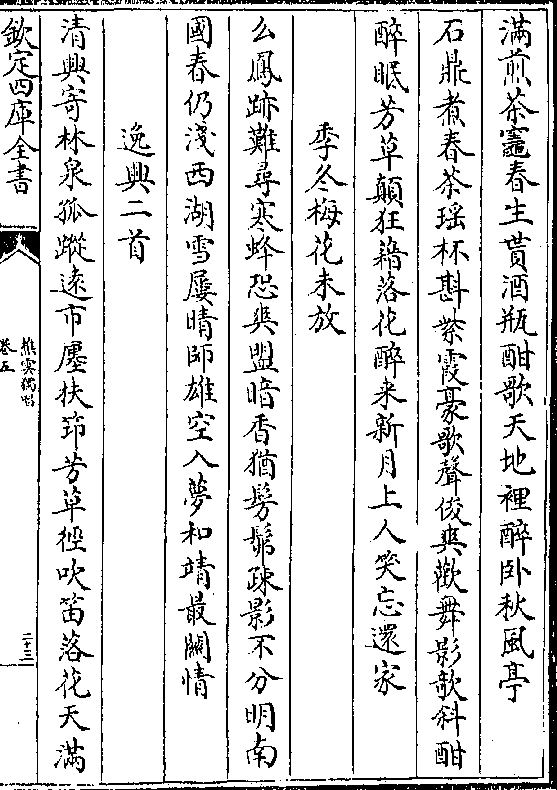 滿煎茶竈春生貰酒瓶酣歌天地裡醉卧秋風亭
石鼎煮春茶瑶杯斟紫霞豪歌聲俊爽歡舞影欹斜酣
醉眠芳草顛狂藉落花醉来新月上人笑忘還家
季冬梅花未放
么鳳跡難尋寒蜂恐爽盟暗香猶髣髴疎影不分明南
國春仍淺西湖雪屢晴師雄空入夢和靖最關情
逸興二首
清興寄林泉孤蹤遠市廛扶筇芳草徑吹笛落花天滿
欽定四庫全書
樵雲獨唱
卷五
二十三